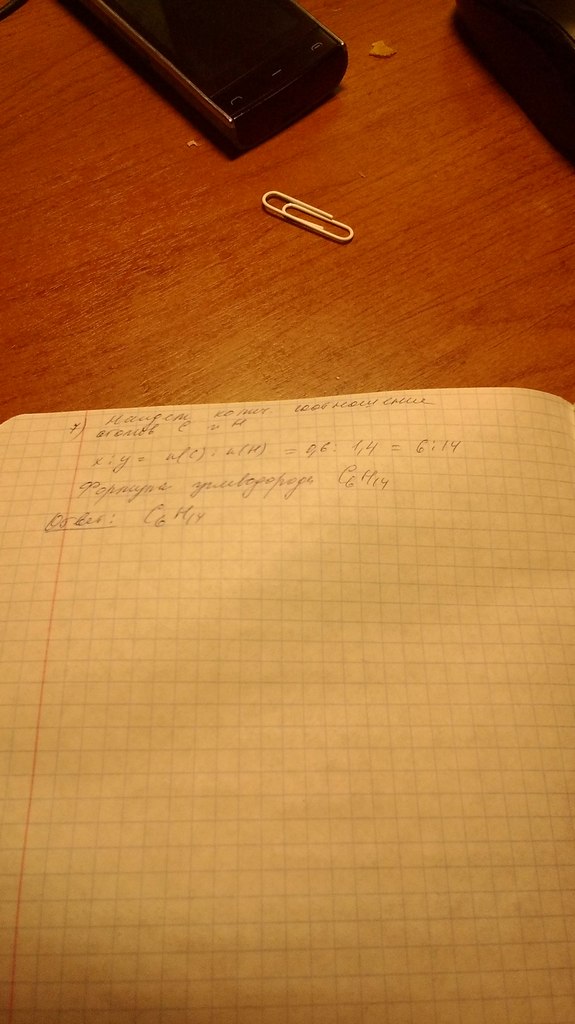 7) Найдем колич. соотношение
атомов C и H
x : y = n(C) : n(H) = 0,6 : 1,4 = 6 : 14
Формула углеводорода C₆H₁₄
Ответ: C₆H₁₄